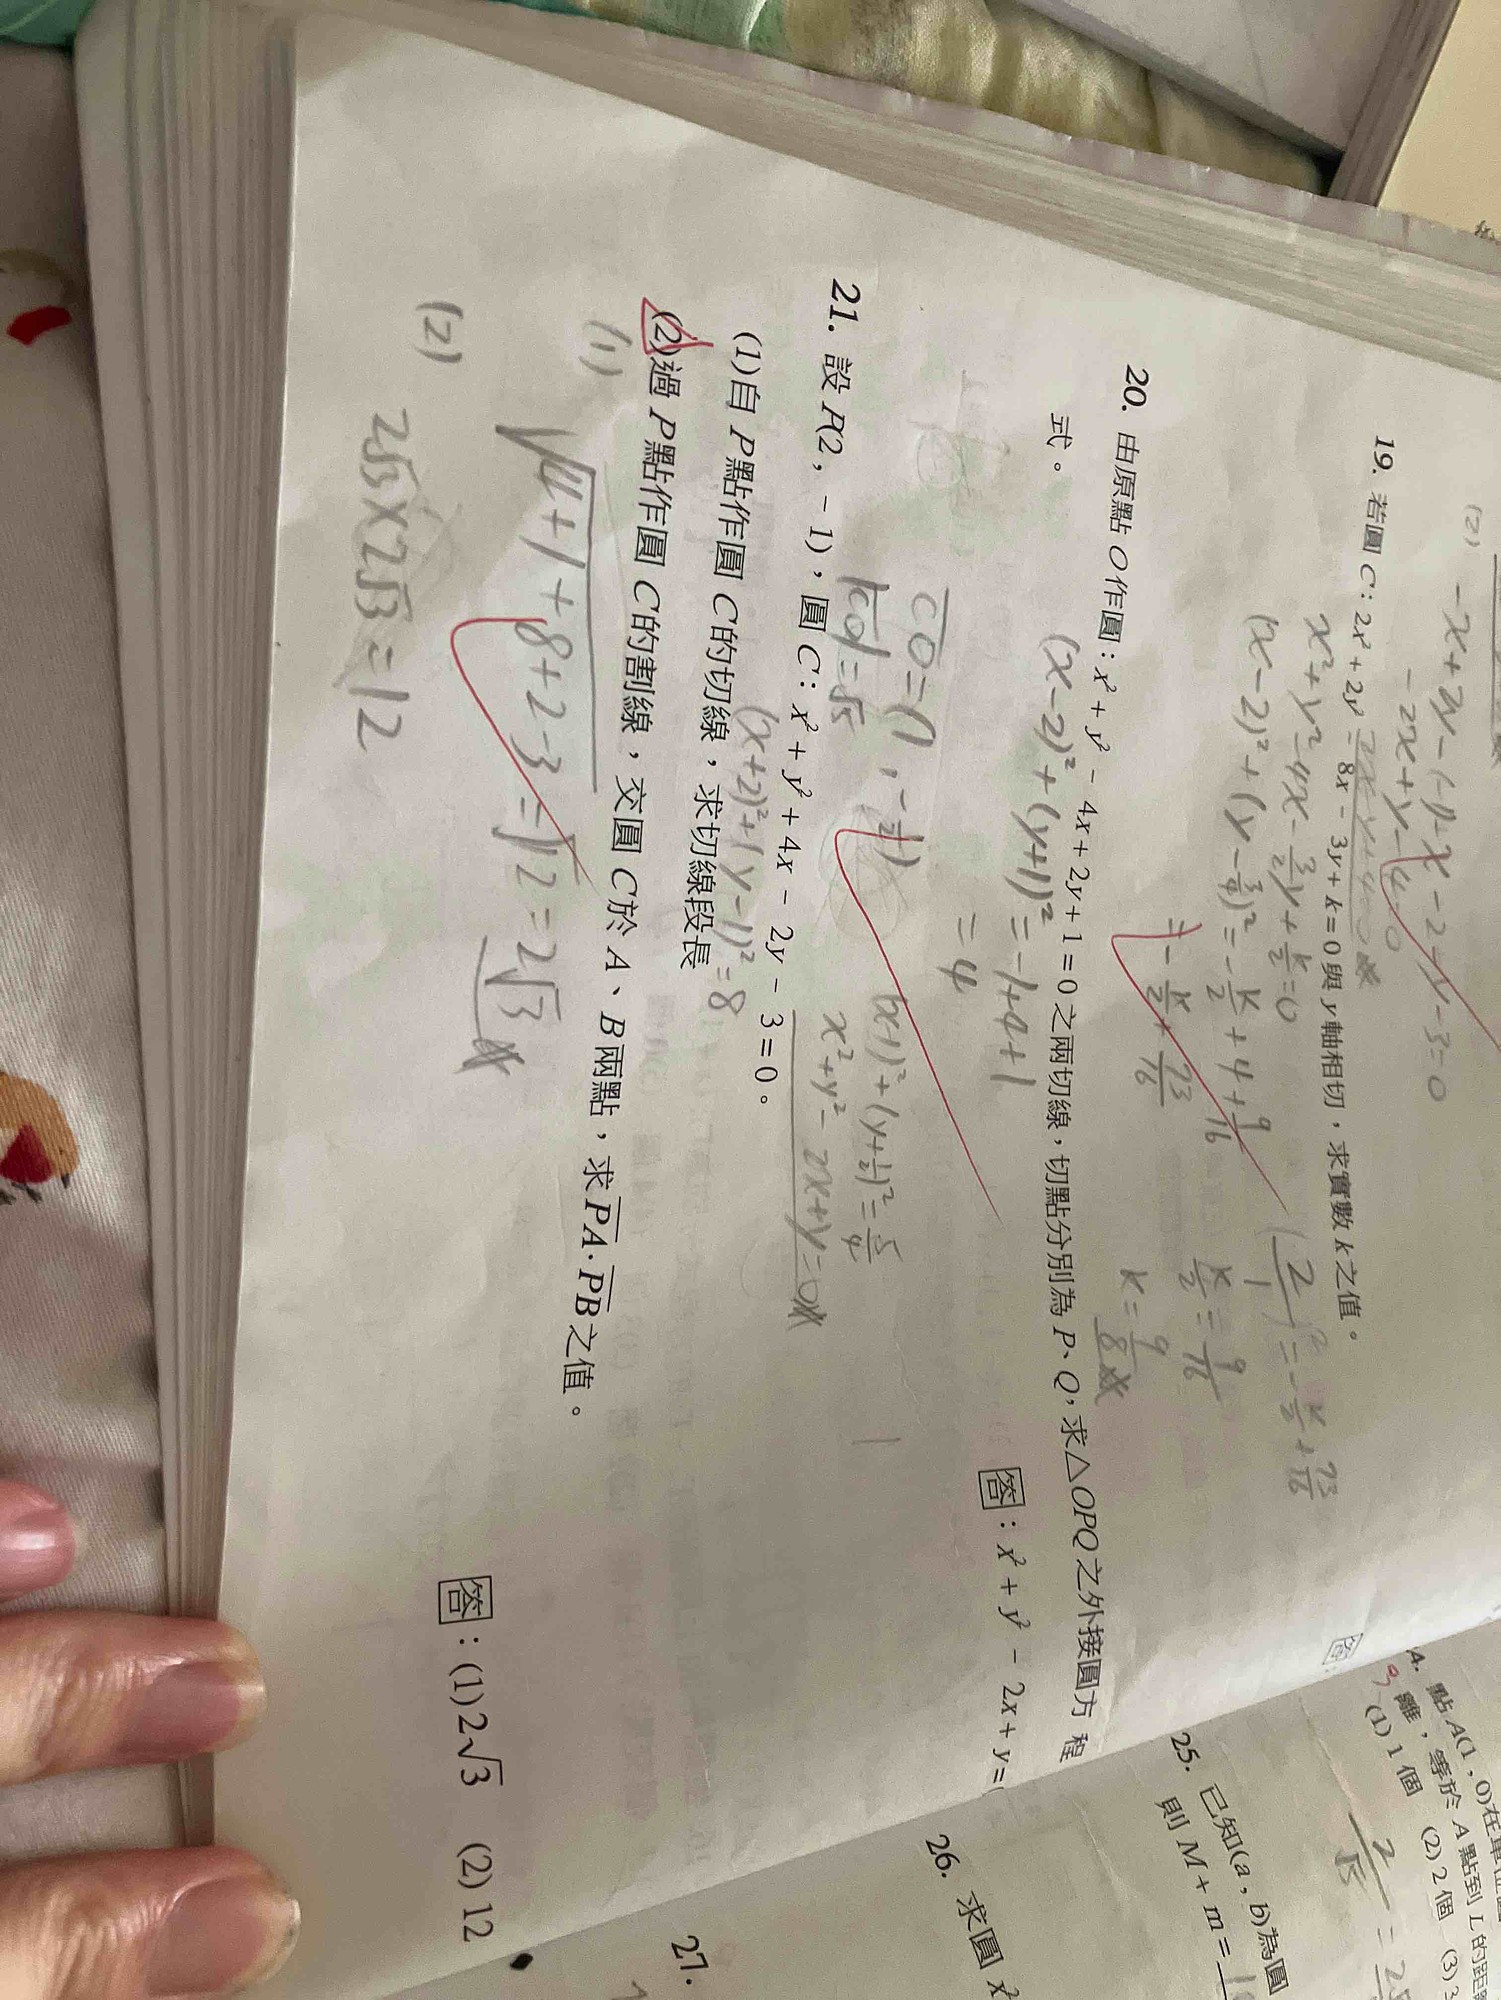 (2) -x+2y-(-1)-x-2+y-3=0
-2x+y-4=0
19. 若圓 C：2x²+2y²-8x-3y+k=0與y軸相切，求實數k之值。
x²+y²-4x-3/2y+k/2=0
(x-2)²+(y-3/4)²=-k/2+4+9/16
=-k/2+73/16
k/2=9/16
k=9/8
20. 由原點O作圓：x²+y²-4x+2y+1=0之兩切線，切點分別為P、Q，求△OPQ之外接圓方程
式。
(x-2)²+(y+1)²=-1+4+1
=4
答：x²+y²-2x+y=
CO=(1,-1/2)
|CO|=√5
(x-1)²+(y+1/2)²=5/4
x²+y²-2x+y=0
21. 設P(2，-1)，圓C：x²+y²+4x-2y-3=0。
(x+2)²+(y-1)²=8
(1)自P點作圓C的切線，求切線段長
(2)過P點作圓C的割線，交圓C於A、B兩點，求PA·PB之值。
(1) √4+1+8+2-3=√12=2√3
(2) 2√3×2√3=12
答：(1)2√3 (2)12
4. 點A(1，0)在單位圓
離，等於A點到L的距離
(1)1個 (2)2個 (3)3
25. 已知(a，b)為圓
則M+m=
26. 求圓x²
27.